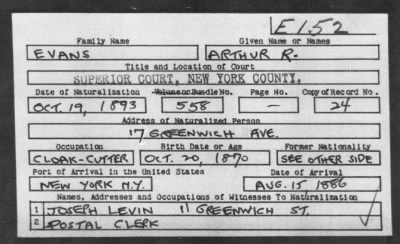 E152
Family Name Given Name or Names
EVANS ARTHUR R.
Title and Location of Court
SUPERIOR COURT, NEW YORK COUNTY.
Date of Naturalization Volume or Bundle No. Page No. Copy of Record No.
OCT. 19, 1893 558 — 24
Address of Naturalized Person
17 GREENWICH AVE.
Occupation Birth Date or Age Former Nationality
CLOAK-CUTTER OCT. 20, 1870 SEE OTHER SIDE
Port of Arrival in the United States Date of Arrival
NEW YORK N.Y. AUG. 15 1886
Names, Addresses and Occupations of Witnesses To Naturalization
1 JOSEPH LEVIN 11 GREENWICH ST.
2 POSTAL CLERK